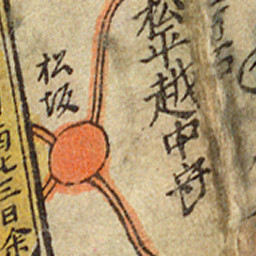 松平越中守
松坂
三日余